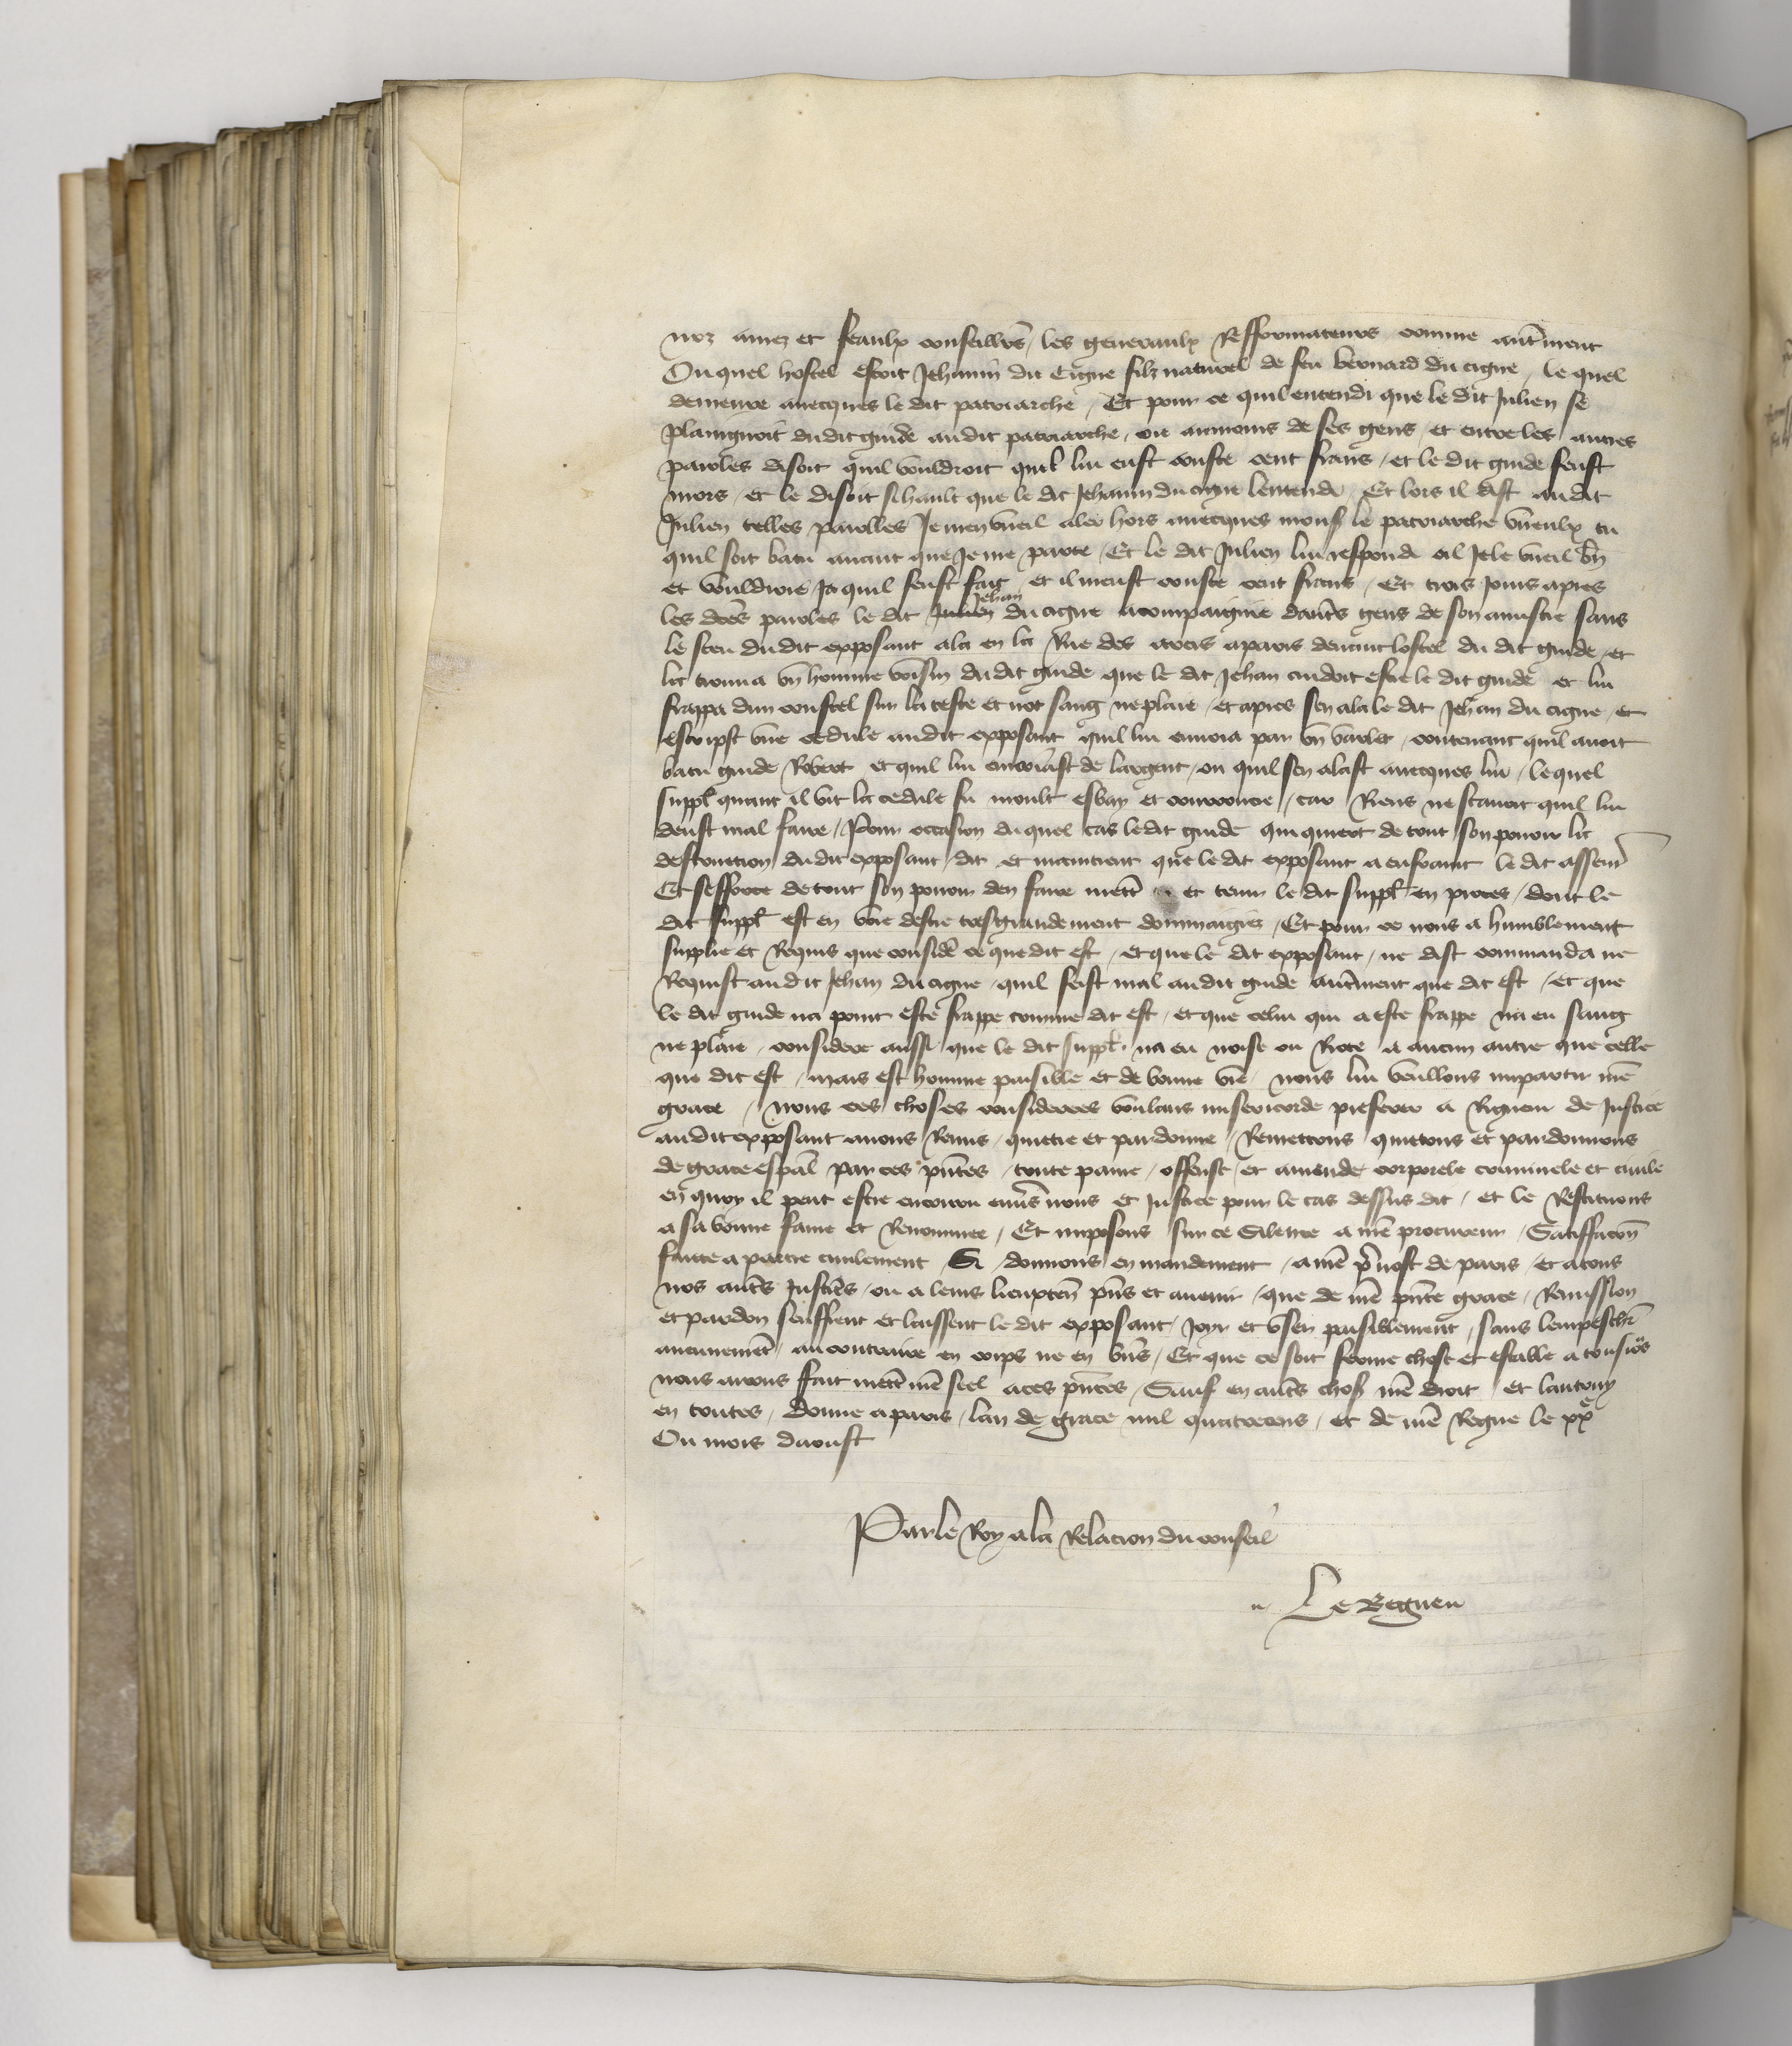 noz amez et feaulx conseillers les generaulx Refformateurs comme autrement
Ou quel hostel estoit Jehannin du Cigne filz naturel de feu bernard du cigne / le quel
demeure avecques le dit patriarche / Et pour ce quil entendi que le dit Julien se
plaingnoit du dit guide au dit patriarche / ou aumoins de ses gens / et entre les autres
paroles disoit quil vouldroit quil lui eust couste cent frans / et le dit guide feust
mors / et le disoit si hault que le dit Jehannin du cigne lentendi / Et lors il dist au dit
Julien telles parolles Je men vueil aler hors avecques mons le patriarche vueulx tu
quil soit batu avant que Je me parte / Et le dit Julien lui respondi oil Je le vueil bn
et vouldroie Ja quil feust fait et il meust couste cent frans / Et trois Jours apres
les dces paroles le dit Julien Jehan du cigne acompaignie dautres gens de son amistie sans
le sceu du dit exposant ala en la Rue des arcis a paris devant lostel du dit guide / et
la trouva vn homme voisin du dit guide que le dit Jehan cuidoit estre le dit guide et lui
frappa dun coustel sur la teste et not sang ne plaie / et apres sen ala le dit Jehan du cigne / et
escripst vne cedule au dit exposant quil lui envoia par vn varlet / contenant quil avoit
batu guide Robert et quil lui envoiast de largent / ou quil sen alast avecques lui / lequel
suppl quant il vit la cedule fu moult esbay et courroucie / car Riens ne scavoit quil lui
deust mal faire / Pour occasion du quel cas le dit guide qui quiert de tout son povoir la
destruction du dit exposant / dit et maintient que le dit exposant a enfraint le dit asseur
Et sefforce de tout son povoir den faire mettr et tenir le dit suppl en proces / dont le
dit suppl est en voie destre tresgrandement dommaigiez / Et pour ce nous a humblement
supplie et Requis que consider ce que dit est / et que le dit exposant / ne dist commanda ne
Requist au dit Jehan du cigne / quil feist mal au dit guide autrement que dit est / et que
le dit guide na point este frappe comme dit est / et que celui qui a este frappe na eu sang
ne plaie / considere aussi que le dit suppl. na eu noise ou Riote a aucun autre que celle
que dit est / mais est homme paisible et de bonne vie / nous lui veullons impartir nre
grace / nous ces choses considerees voulans misericorde preferer a Rigueur de Justice
au dit exposant avons Remis / quictie et pardonne / Remettons quictons et pardonnons
de grace espal par ces pntes / toute paine / offense / et amende corporele criminele et civile
en quoy il peut estre encouru envers nous et Justice pour le cas dessus dit / et le Restituons
a sa bonne fame et Renommee / Et imposons sur ce silence a nre procureur / Satiffacon
faicte a partie civilement Si donnons en mandement / a nre prevost de paris / et a tous
nos autres Justiciers / ou a leurs lieuxten pns et avenir / que de nre pnte grace / Remission
et pardon seuffrent et laissent le dit exposant / Joir et vser paisiblement / sans lempeschr
aucunement / au contraire en corps ne en biens / Et que ce soit ferme chose et estable a tousiors
nous avons fait mettre nre seel a ces pntes / Sauf en autres chos nre droit / et lautruy
en toutes / donne a paris / lan de grace mil quatrecens / et de nre Regne le xxe
Ou mois daoust
Par le Roy a la Relacion du conseil
Le Begueu